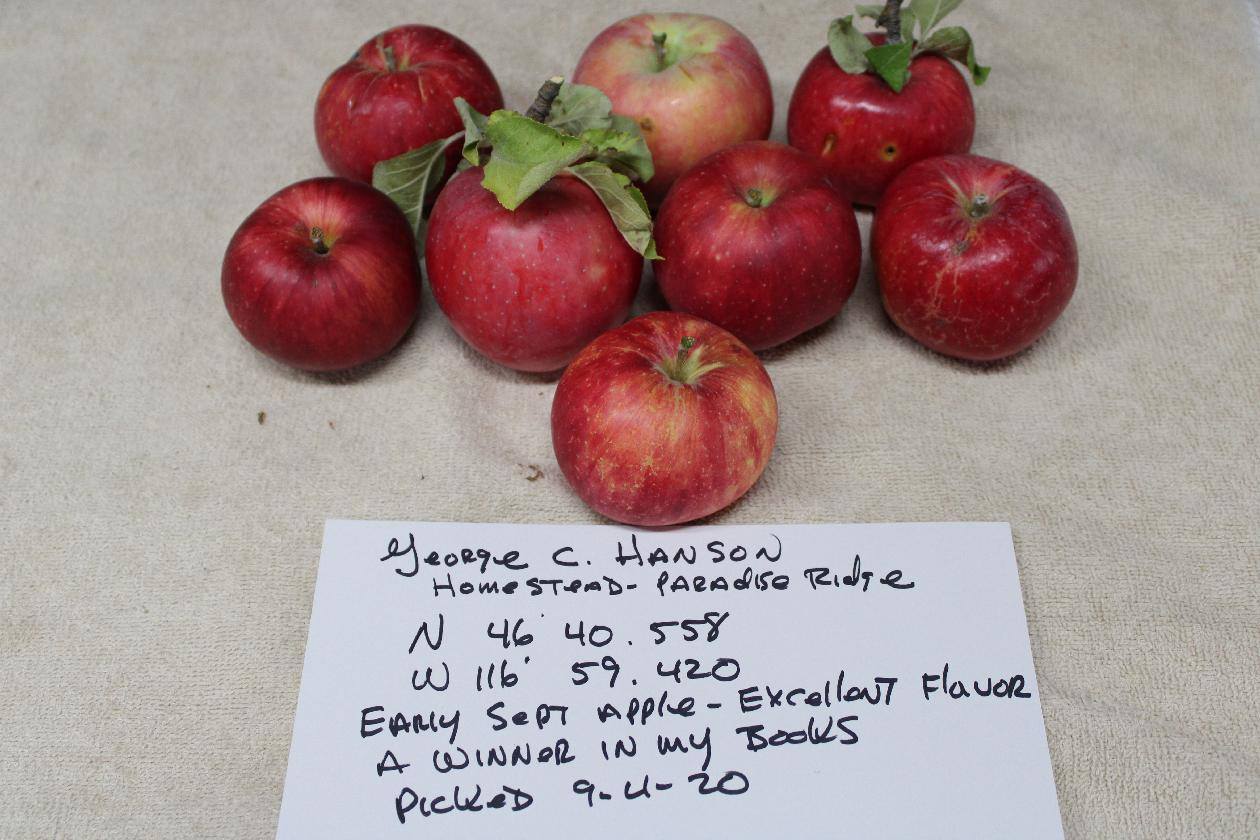 George C. HANSON
HomeSTEAD- PARAdise Ridge
N 46° 40. 558
W 116° 59. 420
EARly SepT Apple - ExcellenT Flavor
A WINNeR IN my Books
PickeD 9-4-20